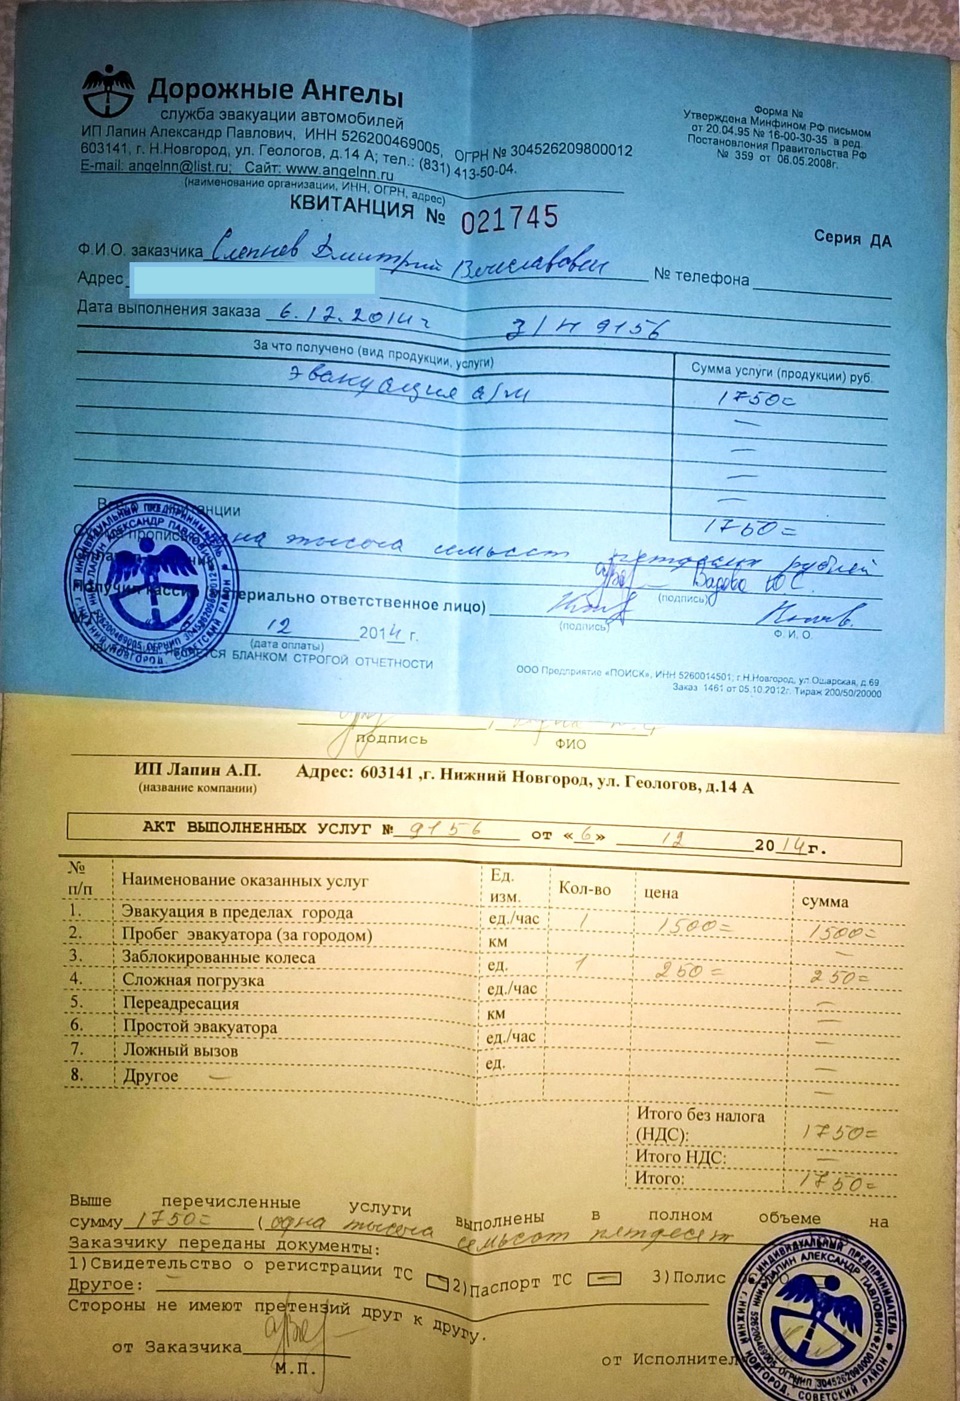 Дорожные Ангелы
служба эвакуации автомобилей
ИП Лапин Александр Павлович, ИНН 526200469005, ОГРН № 304526209800012
603141, г. Н.Новгород, ул. Геологов, д.14 А; тел.: (831) 413-50-04.
E-mail: angelnn@list.ru; Сайт: www.angelnn.ru
(наименование организации, ИНН, ОГРН, адрес)
Форма №
Утверждена Минфином РФ письмом
от 20.04.95 № 16-00-30-35 в ред.
Постановления Правительства РФ
№ 359 от 06.05.2008г.
КВИТАНЦИЯ № 021745
Серия ДА
Ф.И.О. заказчика Слепнев Дмитрий Вячеславович № телефона
Адрес
Дата выполнения заказа 6.12.2014г З/Н 9156
За что получено (вид продукции, услуги) Сумма услуги (продукции) руб.
эвакуация а/м 1750=
—
—
—
—
1750=
тысяча семьсот пятьдесят рублей
(подпись)
Получил кассир (материально ответственное лицо)
(подпись) Ф.И.О.
12 2014 г.
(дата оплаты)
ЯВЛЯЕТСЯ БЛАНКОМ СТРОГОЙ ОТЧЕТНОСТИ
ООО Предприятие «ПОИСК», ИНН 5260014501; г.Н.Новгород, ул.Ошарская, д.69.
Заказ 1461 от 05.10.2012г. Тираж 200/50/20000
подпись ФИО
ИП Лапин А.П. Адрес: 603141 ,г. Нижний Новгород, ул. Геологов, д.14 А
(название компании)
АКТ ВЫПОЛНЕННЫХ УСЛУГ № 9156 от «6» 12 2014г.
№ п/п Наименование оказанных услуг Ед. изм. Кол-во цена сумма
1. Эвакуация в пределах города ед./час 1 1500= 1500=
2. Пробег эвакуатора (за городом) км —
3. Заблокированные колеса ед. 1 250= 250=
4. Сложная погрузка ед./час —
5. Переадресация км —
6. Простой эвакуатора ед./час —
7. Ложный вызов ед. —
8. Другое — —
Итого без налога (НДС): 1750=
Итого НДС: —
Итого: 1750=
Выше перечисленные услуги выполнены в полном объеме на
сумму 1750= (одна тысяча семьсот пятдесят
Заказчику переданы документы:
1)Свидетельство о регистрации ТС 2)Паспорт ТС — 3)Полис
Другое: —
Стороны не имеют претензий друг к другу.
от Заказчика
М.П.
от Исполнител
ИНДИВИДУАЛЬНЫЙ ПРЕДПРИНИМАТЕЛЬ
ЛАПИН АЛЕКСАНДР ПАВЛОВИЧ
ИНН 526200469005 ОГРНИП 304526209800012
г. НИЖНИЙ НОВГОРОД, СОВЕТСКИЙ РАЙОН